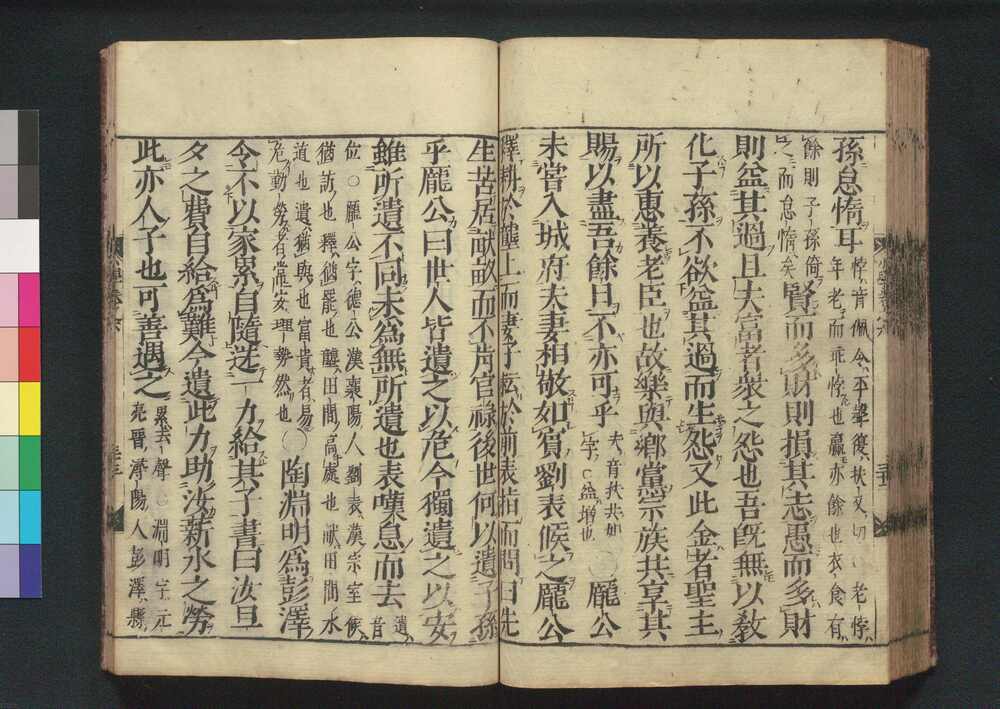 孫怠惰耳
悖音佩令平聲復扶又切○老悖
年老而乖悖也贏亦餘也衣食有
餘則子孫倚
之而怠惰矣
賢而多財則損其志愚而多財
則益其過且夫富者衆之怨也吾既無以教
化子孫不欲益其過而生怨又此金者聖主
所以惠養老臣也故樂與鄉黨宗族共享其
賜以盡吾餘日不亦可乎
夫音扶共如
字○益增也
○龐公
未嘗入城府夫妻相敬如賓劉表候之龐公
釋耕於壟上而妻子耘於前表指而問曰先
生苦居畎畝而不肯官祿後世何以遺子孫
乎龐公曰世人皆遺之以危今獨遺之以安
雖所遺不同未為無所遺也表嘆息而去
遺
音
位○龐公字德公漢襄陽人劉表漢宗室候
猶訪也釋猶罷也壟田間高處也畎田間水
道也遺猶與也富貴者易
危勤勞者常安理勢然也
○陶淵明為彭澤
令不以家累自隨送一力給其子書曰汝旦
夕之費自給為難今遺此力助汝薪水之勞
此亦人子也可善遇之
累去聲○淵明字元
亮晉潯陽人彭澤縣